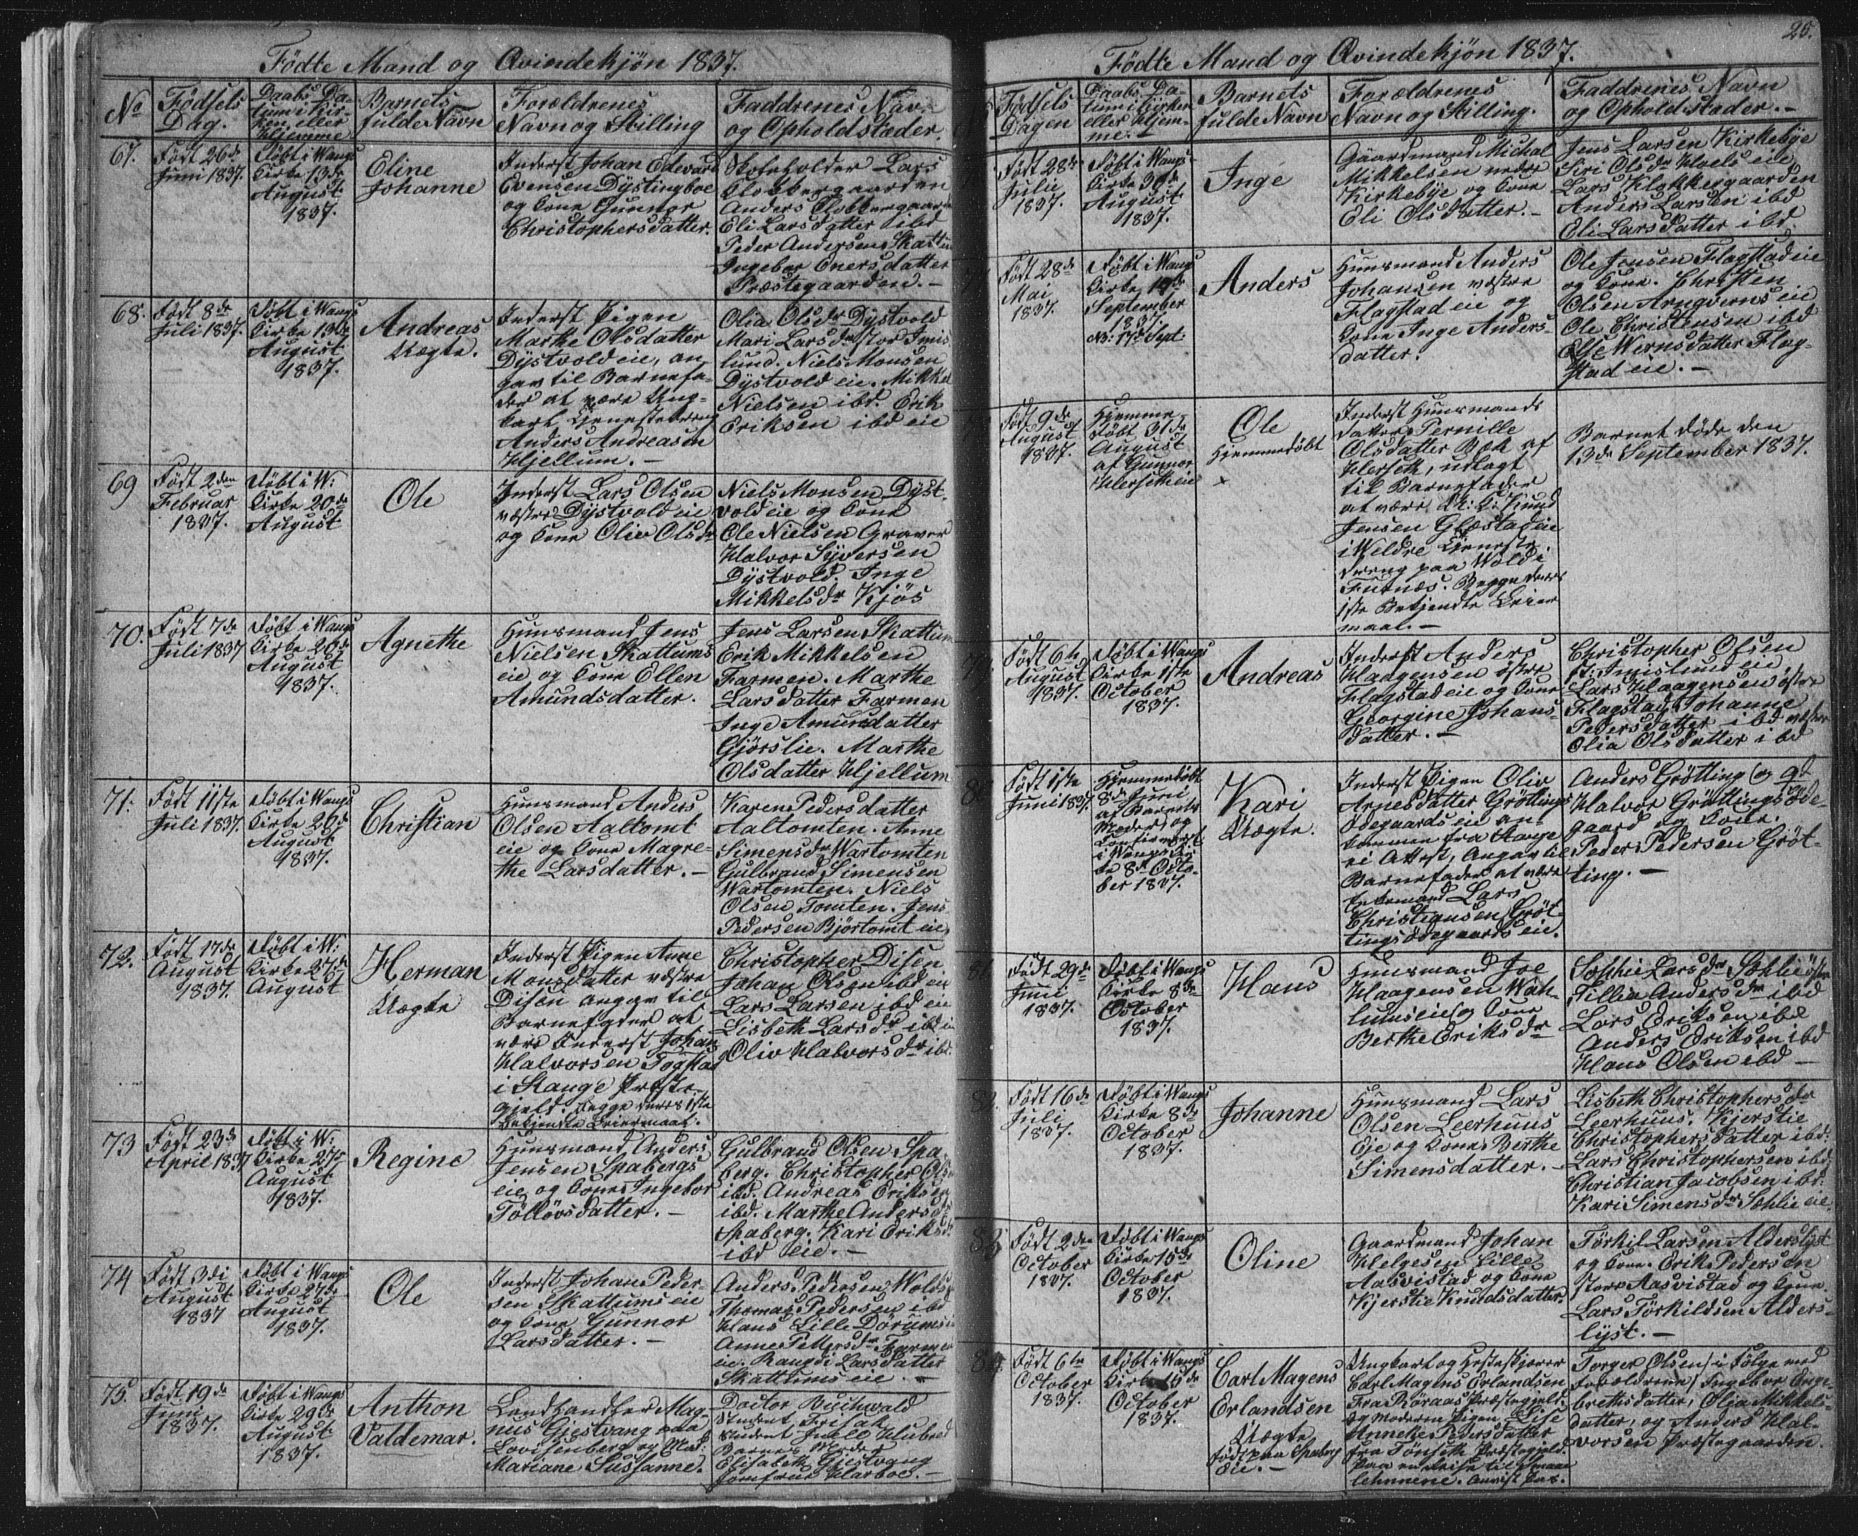 Fødte Mand og Qvindekjøn 1837.
No
Fødsels
Dag.
Daabs Da-
tum i Kir-
ken eller
Hjemme
Barnets
fulde Navn
Forældrenes
Navn og Stilling
Faddrenes Navn
og Opholdstæder
67.
Født 26de
Juni 1837.
Døbt i Wangs
Kirke 13de
August
1837.
Eline
Johanne
Inderst Johan Edevart
Evensen Dystingboe
og Kone Gunnor
Christophersdatter.
Lars
Klokkergaarden
Anders Klokkergaarden
Eli Larsdatter ibd
Peder Andersen Skattum
Ingebor Enersdatter
Præstegaarden. —
68.
Født 8de
Juli 1837.
Døbt i Wangs
Kirke 13de
August
1837.
Andreas
Uægte.
Inderst Pigen
Marthe Olsdatter
Dystvold eie, an-
gav til Barnefa-
der at være Ung-
karl Tjenestedreng
Anders Andreasen
Hjellum. —
Olia Olsdr Dystvold
Mari Larsdr stor Imis
lund. Niels Monsen
Dystvold eie. Mikkel
Nielsen ibd. Erik
Eriksen ibd eie
69
Født 2den
Februar
1837.
Døbt i W:
Kirke 20de
August
Ole
Inderst Lars Olsen
væstre Dystvold eie
og Kone Olia Olsdr
Niels Monsen Dyst-
vold eie og Kone
Ole Nielsen Graver
Halvor Syversen
Dystvold. Inge
Mikkelsdr Kjøs
70.
Født 7de
Juli 1837
Døbt i Wangs
Kirke 20de
August
1837.
Agnethe
Huusmand Jens
Nielsen Skattums
eie og Kone Ellen
Amundsdatter.
Jens Larsen Skattum
Erik Mikkelsen
Farmen. Marthe
Larsdatter Farmen
Inge Amundsdatter
Gjørslie. Marthe
Olsdatter Hjellum
71.
Født 11te
Juli 1837.
Døbt i Wangs
Kirke 20de
August
1837.
Christian
Huusmand Anders
Olsen Aaltomt
eie og Kone Magre-
the Larsdatter. —
Karen Pedersdatter
Aaltomten. Anne
Simensdr Wartomten
Gulbrand Simensen
Wartomten. Niels
Olsen Tomten. Jens
Pedersen Bjørtomt eie
72.
Født 17de
August
1837.
Døbt i W:
Kirke 27de
August
Herman
Uægte
Inderst Pigen Anne
Monsdatter væstre
Disen angav til
Barnefader at
være Inderst Johan
Halvorsen Fogstad
i Stange Præste-
gjeld. Begge deres 1ste
bekjendte Leiermaal.
Christopher Disen
Johan Olsen ibd eie
Lars Larsen ibd eie
Lisbeth Larsdr ibd eie
Oliv Halvorsdr ibd.
73
Født 23de
April 1837
Døbt i W:
Kirke 27de
August
1837.
Regine
Huusmand Anders
Jensen Spabergs
eie og Kone Ingebor
Tollovsdatter. —
Gulbrand Olsen Spa
berg. Christopher Olsen
ibd. Andreas Eriksen
ibd. Marthe Andersdr
Spaberg. Kari Eriksdr
ibd eie. —
74
Født 3di
August
1837
Døbt i Wangs
Kirke 27de
August
1837.
Ole
Inderst Johan Peder-
sen Skattums eie
og Kone Gunnor
Larsdatter. —
Anders Pedersen Wolds
Thomas Pedersen ibd
Hans Lille Dørums
Anne Pettersdr Farmen
eie. Rangdi Larsdatter
Skattums eie. —
75.
Født 19de
Juni
1837.
Døbt i Wangs
Kirke 29de
August
1837.
Anthon
Valdemar.
Landhandler Mag-
nus Gjestvang paa
Lovisenberg og Mad:
Mariane Sussanne.
Doctor Buchwald
Student Frisak
Student Juell Hubred
Elisabeth Gjestvang
Jomfrue Harboe. —
25.
Fødte Mand og Qvindekjøn 1837.
Fødsels
Dagen
Daabs Da-
tum i Kirken
eller Hjem-
me.
Barnets
fulde Navn
Forældrenes
Navn og Stilling.
Faddrenes Navn
og Opholdstæder. —
Født 28de
Julii
1837.
Døbt i Wangs
Kirke 30de
August
1837.
Inge
Gaardmand Michal
Mikkelsen nedre
Kirkebye og Kone
Eli Olsdatter. —
Jens Larsen Kirkebye
Siri Olsdr Hoels eie
Lars Klokkergaarden
Anders Larsen ibd
Eli Larsdatter ibd.
Født 28de
Mai
1837.
Døbt i Wangs
Kirke
September
1837.
NB: 17de Sept.
Anders
Huusmand Anders
Johansen væstre
Flagstad eie og
Kone Inge Anders
datter.
Ole Jensen Flagstad eie
og Kone. Christen
Olsen Arnqverns eie
Ole Christensen ibd
Else Wernsdatter Flag-
stad eie. —
Født 9de
August
1837.
Hjemme-
døbt 31te
August
af Gunnor
Hersetheie
Ole
Hjemmedøbt
×
Inderst Huusmands
datter Pernille
Olsdatter Bek af
Herseth, udlagt
til Barnefader
at være U: K: Knud
Jensen Glæstad eie
i Weldre Tjeneste-
dreng paa Wold i
Furnæs. Begge deres
1ste Bekjendte Leier
maal. —
Barnet døde den
13de September 1837.
Født 6te
August
1837.
Døbt i Wangs
Kirke 1ste
October
1837.
Andreas
Inderst Anders
Haagensen østre
Flagstad eie og Kone
Georgine Johans-
datter. —
Christopher Olsen
st: Imislund eie
Lars Haagensen østre
Flagstad. Johanne
Pedersdatter ibd væstre
Olia Olsdatter ibd
Født 1ste
Juni 1837.
Hjemmedøbt
8de Juni
af Barnets
Moder og
Confirmert
i Wangs Kir
ke 8de Octo-
ber 1837.
Kari
Uægte.
Inderst Pigen Oliv
Arnesdatter Grøttings
Ødegaards eie an-
kommen fra
Attest, Angav til
Barnefader at være
Enkemand Lars
Christiansen Grøt-
tingsødegaards eie.
Anders Grøtting og
Halvor Grøttingsøde-
gaard og Kone.
Peder Pedersen Grøt-
ting. —
81.
Født 29de
Juni
1837.
Døbt i Wangs
Kirke 8de
October
1837.
Hans
Huusmand Joe
Haagensen Wah-
lums eie og Kone
Berthe Eriksdr
Sophie Larsdr Sohlie
Lillia Andersdr ibd
Lars Eriksen ibd
Anders Eriksen ibd
Hans Olsen ibd —
82.
Født 16de
Juli
1837.
Døbt i Wangs
Kirke 8de
October
1837.
Johanne
Huusmand Lars
Olsen Leerhuus
Eje og Kone Berthe
Simensdatter. —
Lisbeth Christophersdr
Leerhuus. Kjerstie
Christophersdatter ibd:
Lars Christophersen ibd.
Christian Jacobsen ibd:
Kari Simensdr Sohlie eie.
83
Født 2den
October
1837.
Døbt i Wangs
Kirke 15de
October
1837.
Oline
Gaardmand Johan
Helgesen Lille
Aasvistad og Kone
Kjerstie Knudsdatter.
Torkil Larsen Alderslyst
og Kone. Erik Pedersen
Store Aasvistad og Kone
Lars Torkildsen Alders-
lyst. —
84.
Født 6te
October
1837.
Døbt i Wangs
Kirke 15de
October
1837.
Carl Magens
Erlandsen
Uægte
født paa Spaberg
Eie. —
Ungkarl og Hesteskjærer
Carl Magens Erlandsen
fra Røraas Præstegjeld.
og Moderen Pigen Lise
Anneke Pedersdatter
fra Tønseth Præstegjeld.
Torger Olsen i Følge med
Forældrene. Ingebor Enge-
brethsdatter, Olia Mikkels-
datter, og Anders Hal-
vorsen Præstegaarden.